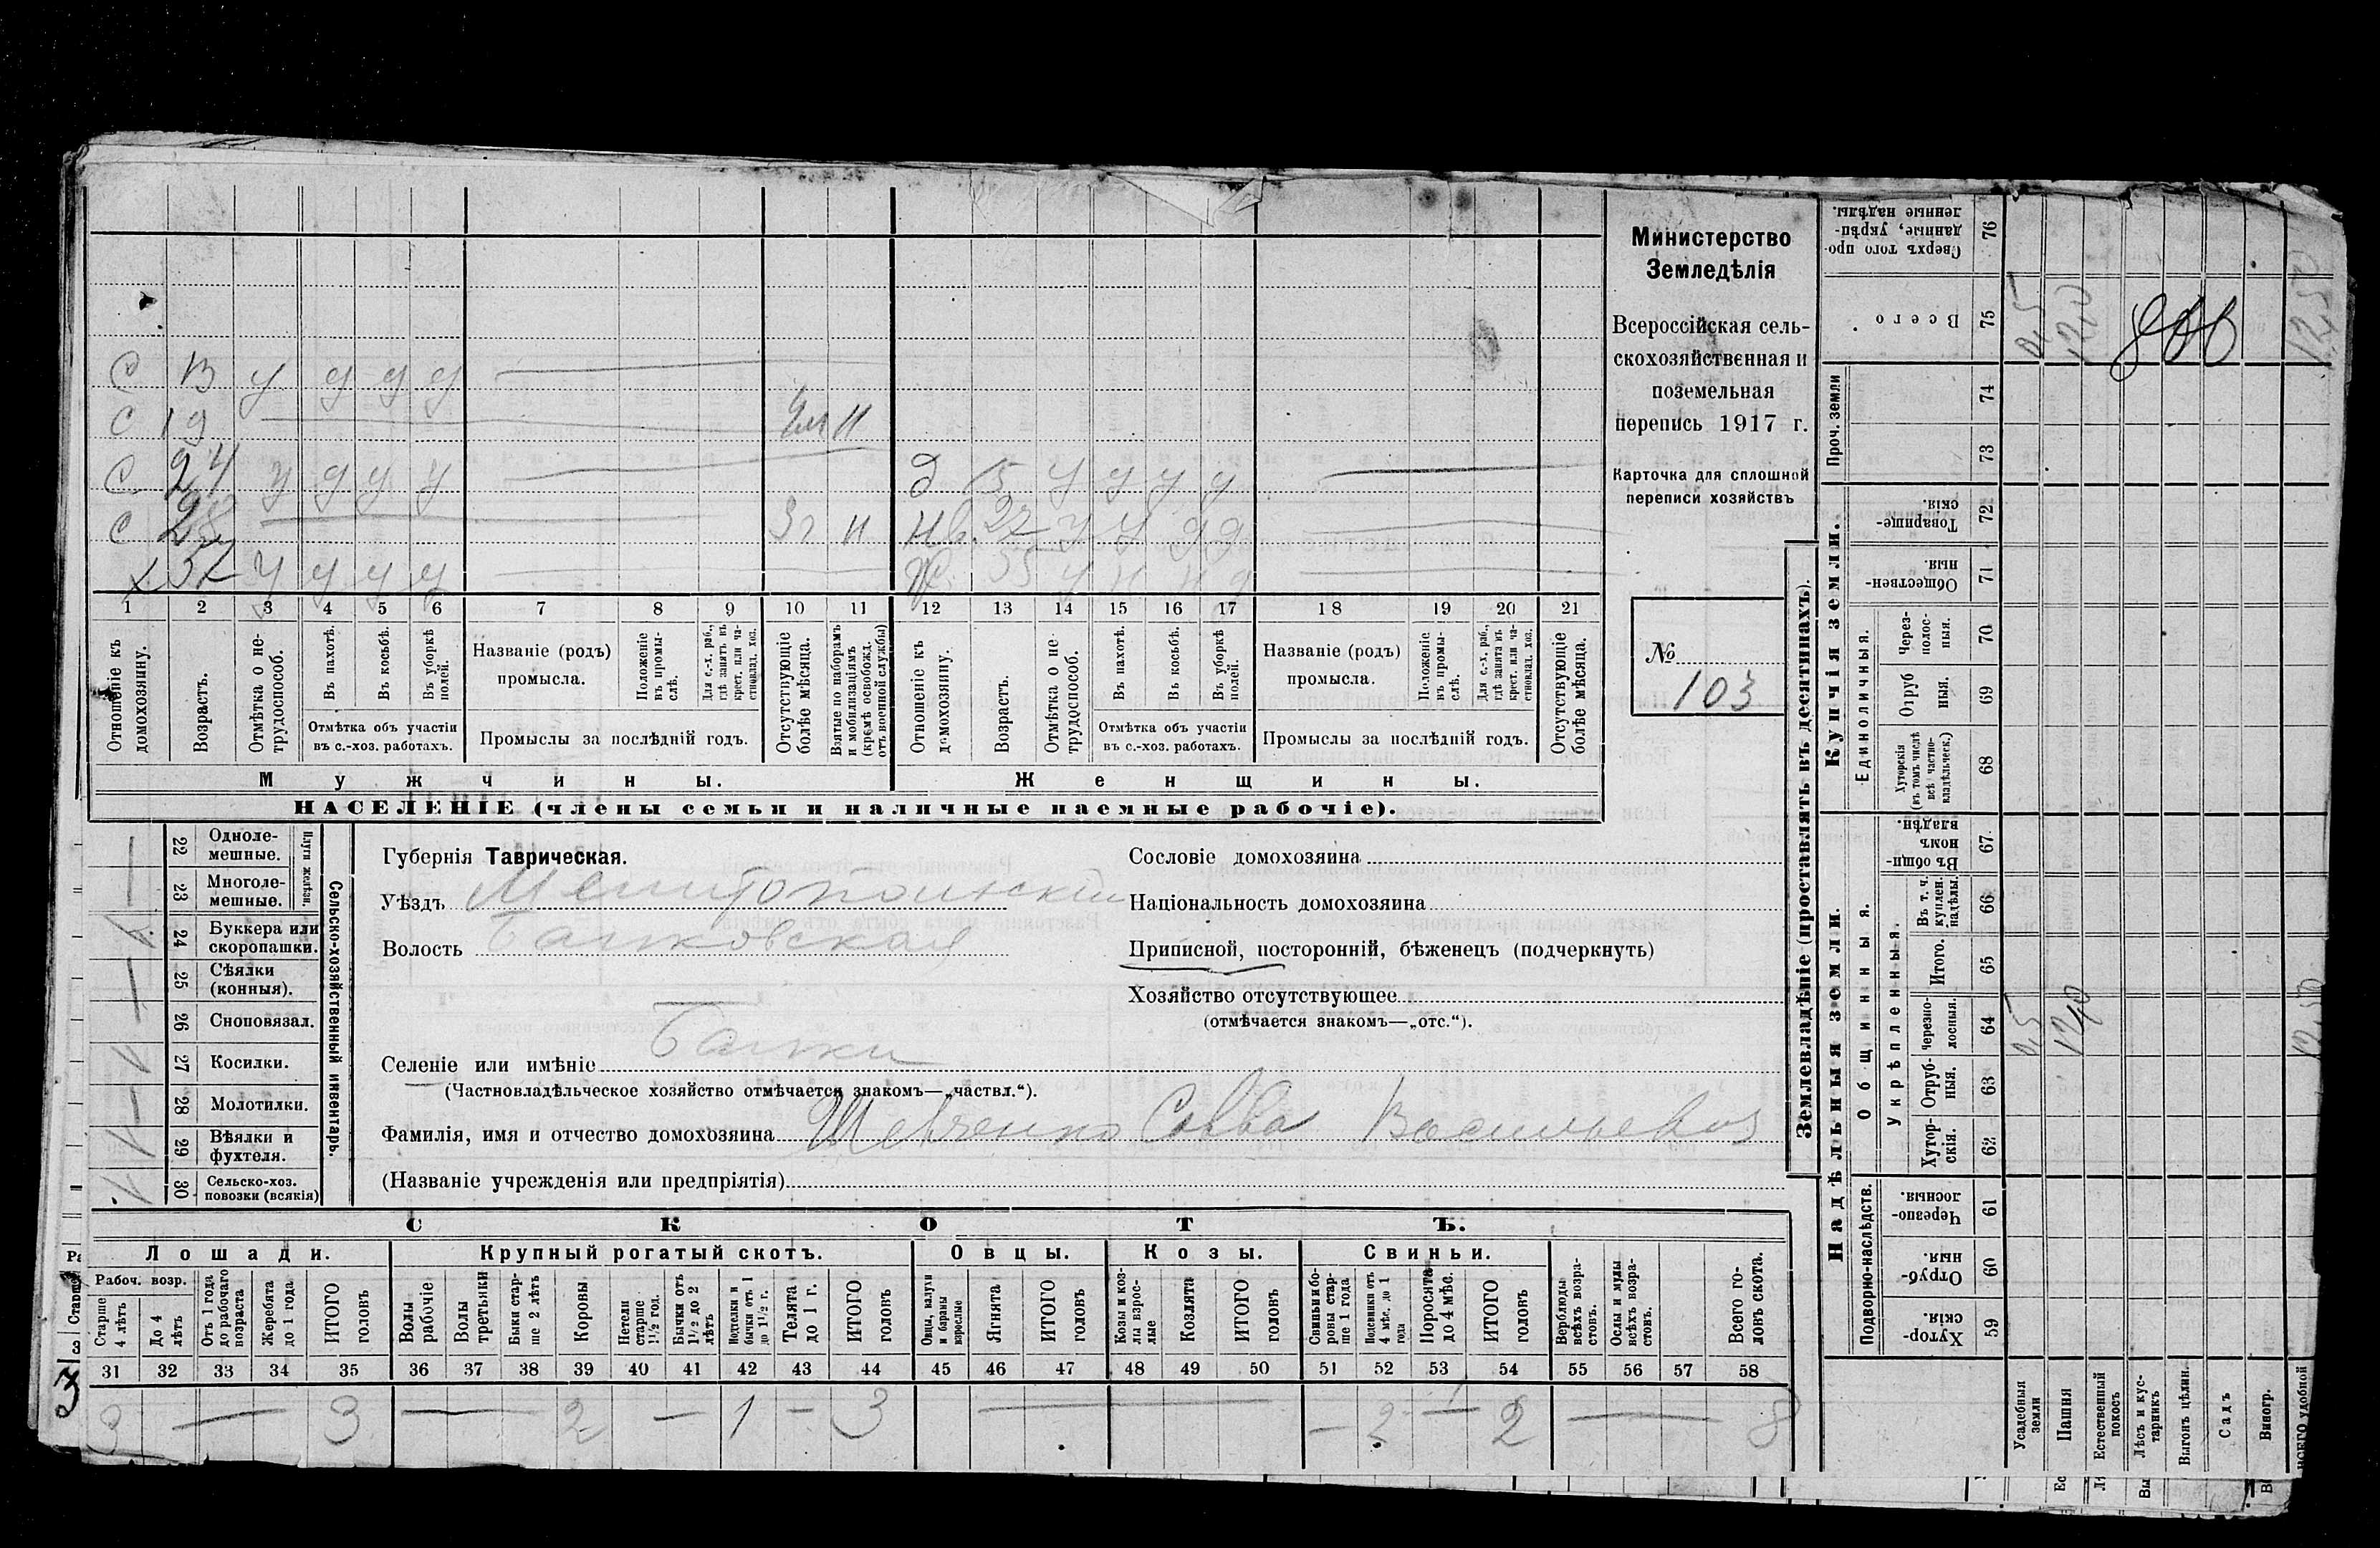 С 13 у у у у
С 19 н
С 24 у у у у
С 28 3г н
х 52 у у у у
д 15 у у у у
Нв. 22 у у у у
Ж. 55 у н н у
1 2 3 4 5 6 7 8 9 10 11 12 13 14 15 16 17 18 19 20 21
Отношеніе къ домохозяину.
Возрастъ.
Отмѣтка о не-трудоспособ.
Въ пахотѣ.
Въ косьбѣ.
Въ уборкѣ полей.
Отмѣтка объ участіи
въ с.-хоз. работахъ.
Названіе (родъ)
промысла.
Положеніе въ промы-слѣ.
Для с.-х. раб., гдѣ занятъ въ крест. или ча-стновлад. хоз.
Промыслы за послѣдній годъ.
Отсутствующіе болѣе мѣсяца.
Взятые по наборамъ и мобилизаціямъ (кромѣ освобожд. отъ военной службы)
Отношеніе къ домохозяину.
Возрастъ.
Отмѣтка о не-трудоспособ.
Въ пахотѣ.
Въ косьбѣ.
Въ уборкѣ полей.
Отмѣтка объ участіи
въ с.-хоз. работахъ.
Названіе (родъ)
промысла.
Положеніе въ промы-слѣ.
Для с.-х. раб., гдѣ занята въ крест. или ча-стновлад. хоз.
Промыслы за послѣдній годъ.
Отсутствующіе болѣе мѣсяца.
Мужчины. Женщины.
НАСЕЛЕНІЕ (члены семьи и наличные наемные рабочіе).
Министерство
Земледѣлія
Всероссійская сель-
скохозяйственная и
поземельная
перепись 1917 г.
Карточка для сплошной
переписи хозяйствъ
№
103
22 Одноле-мешные.
23 Многоле-мешные.
Плуги желѣзн.
24 Буккера или скоропашки.
25 Сѣялки (конныя).
26 Сноповязал.
27 Косилки.
28 Молотилки.
29 Вѣялки и фухтеля.
30 Сельско-хоз. повозки (всякія)
Сельско-хозяйственный инвентарь.
Губернія Таврическая.
Уѣздъ Мелитопольскій
Волость Балковская
Селеніе или имѣніе Балки
(Частновладѣльческое хозяйство отмѣчается знакомъ—„частвл.“).
Фамилія, имя и отчество домохозяина Шевченко Савва Васильевич
(Названіе учрежденія или предпріятія)
Сословіе домохозяина
Національность домохозяина
Приписной, посторонній, бѣженецъ (подчеркнуть)
Хозяйство отсутствующее
(отмѣчается знакомъ—„отс.“).
СКОТЪ.
Лошади. Крупный рогатый скотъ. Овцы. Козы. Свиньи.
Рабоч. возр.
Старше 4 лѣтъ
До 4 лѣтъ
Отъ 1 года до рабочаго возраста
Жеребята до 1 года
ИТОГО головъ
Волы рабочіе
Волы третьяки
Быки стар-ше 2 лѣтъ
Коровы
Нетели старше 1½ год.
Бычки отъ 1½ до 2 лѣтъ
Подтелки и бычки отъ 1 до 1½ г.
Телята до 1 г.
ИТОГО головъ
Овцы, валухи и бараны взрослые
Ягнята
ИТОГО головъ
Козы и коз-лы взрос-лые
Козлята
ИТОГО головъ
Свиньи и бо-ровы стар-ше 1 года
Подсвинки отъ 4 мѣс. до 1 года
Поросята до 4 мѣс.
ИТОГО головъ
Верблюды всѣхъ возра-стовъ.
Ослы и мулы всѣхъ возра-стовъ.
Всего го-ловъ скота.
31 32 33 34 35 36 37 38 39 40 41 42 43 44 45 46 47 48 49 50 51 52 53 54 55 56 57 58
3 — 3 — 2 — 1 — 3 — — 2 — 2 — 8
Землевладѣніе (проставлять въ десятинахъ).
Купчія земли.
Надѣльныя земли.
Сверхъ того про-данные, укрѣп-ленные надѣлы. 76
Всего 75
Проч. земли 74 73
Товарище-скія. 72
Обществен-ныя 71
Единоличныя.
Через-полос-ныя. 70
Отруб ныя. 69
Хуторскія (въ томъ числѣ всѣ частно-владѣльческ.) 68
Въ общи-номъ владѣн. 67
Общинныя.
Укрѣпленныя.
Въ т. ч. куплен. надѣлы. 66
Итого. 65
Черезпо-лосныя. 64
Отруб-ныя. 63
Хутор-скія. 62
Подворно-наслѣдств.
Черезпо-лосныя. 61
Отруб-ныя. 60
Хутор-скія. 59
Усадебныя земли
Пашня
Естественный покосъ
Лѣсъ и кус-тарникъ
Выгонъ цѣлин.
Садъ
Виногр.
ВСЕГО удобной
0,5
1200
12,50
0,5
12,50